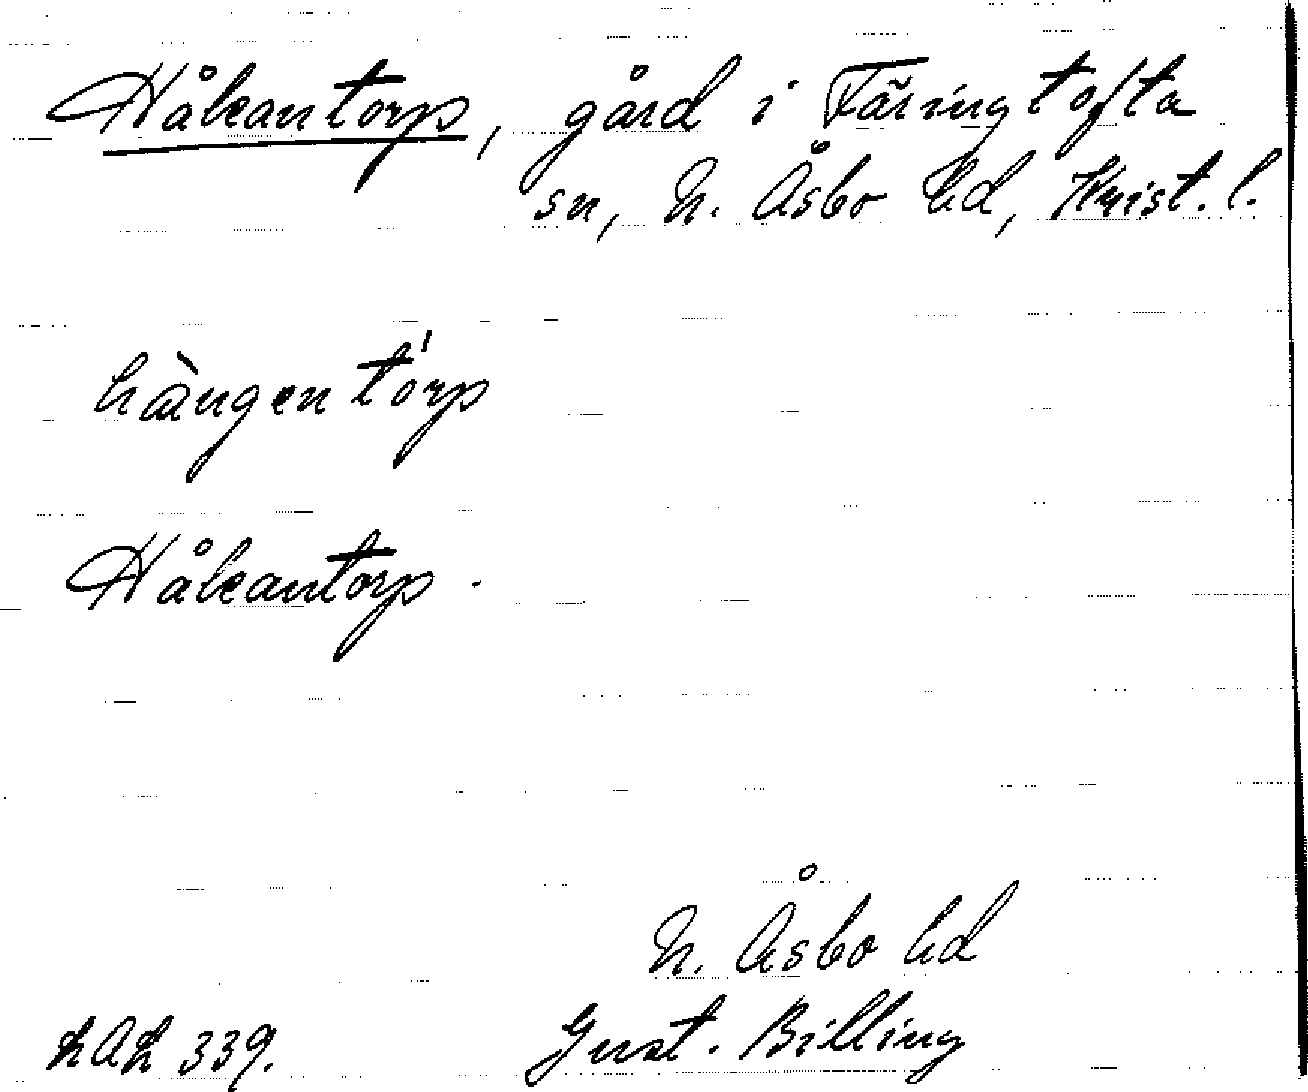 Håkantorp, gård i Färingtofta
sn, N. Åsbo hd, Krist. l.
hàngentórp
Håkantorp.
N. Åsbo hd
LAL 339.
Gust. Billing